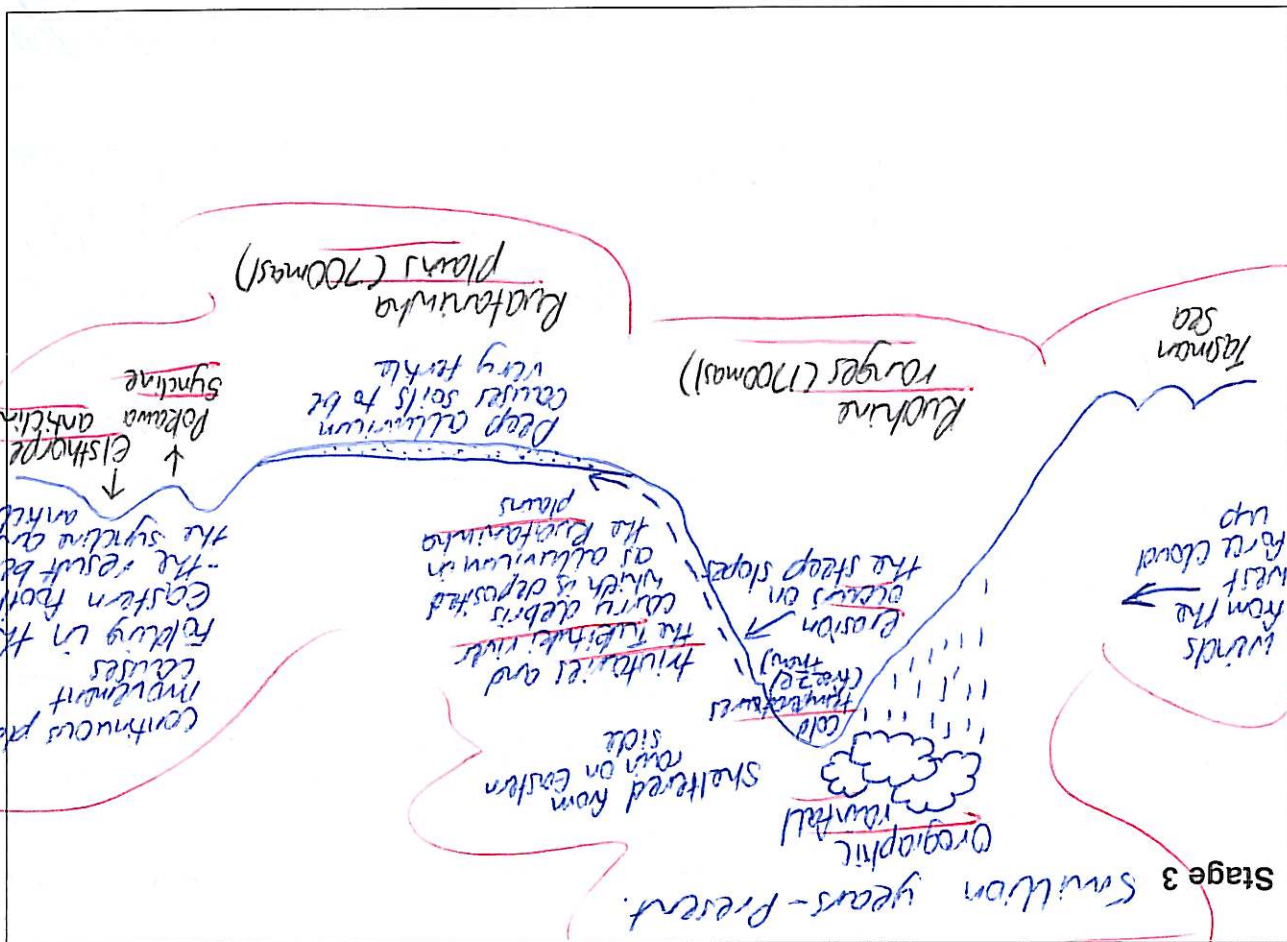 Stage 3
5million years - Present.
Orographic
rainfall
Sheltered from
rain on Eastern
side
Winds
from the
west
force cloud
up
Cold
temperatures
(freeze/
thaw)
Erosion
occurs on
the steep slopes
tributaries and
the Tukituki river
carry debris
which is deposited
as alluvium in
the Ruataniwha
plains
Continuous pla
movement
causes
folding in th
Eastern footh
- the result be
the syncline an
anticl
Tasman
Sea
Ruahine
ranges (1700masl)
Deep alluvium
causes soils to be
very fertile
Ruataniwha
plains (700masl)
Pokawa
Syncline
Elsthorpe
anticlin